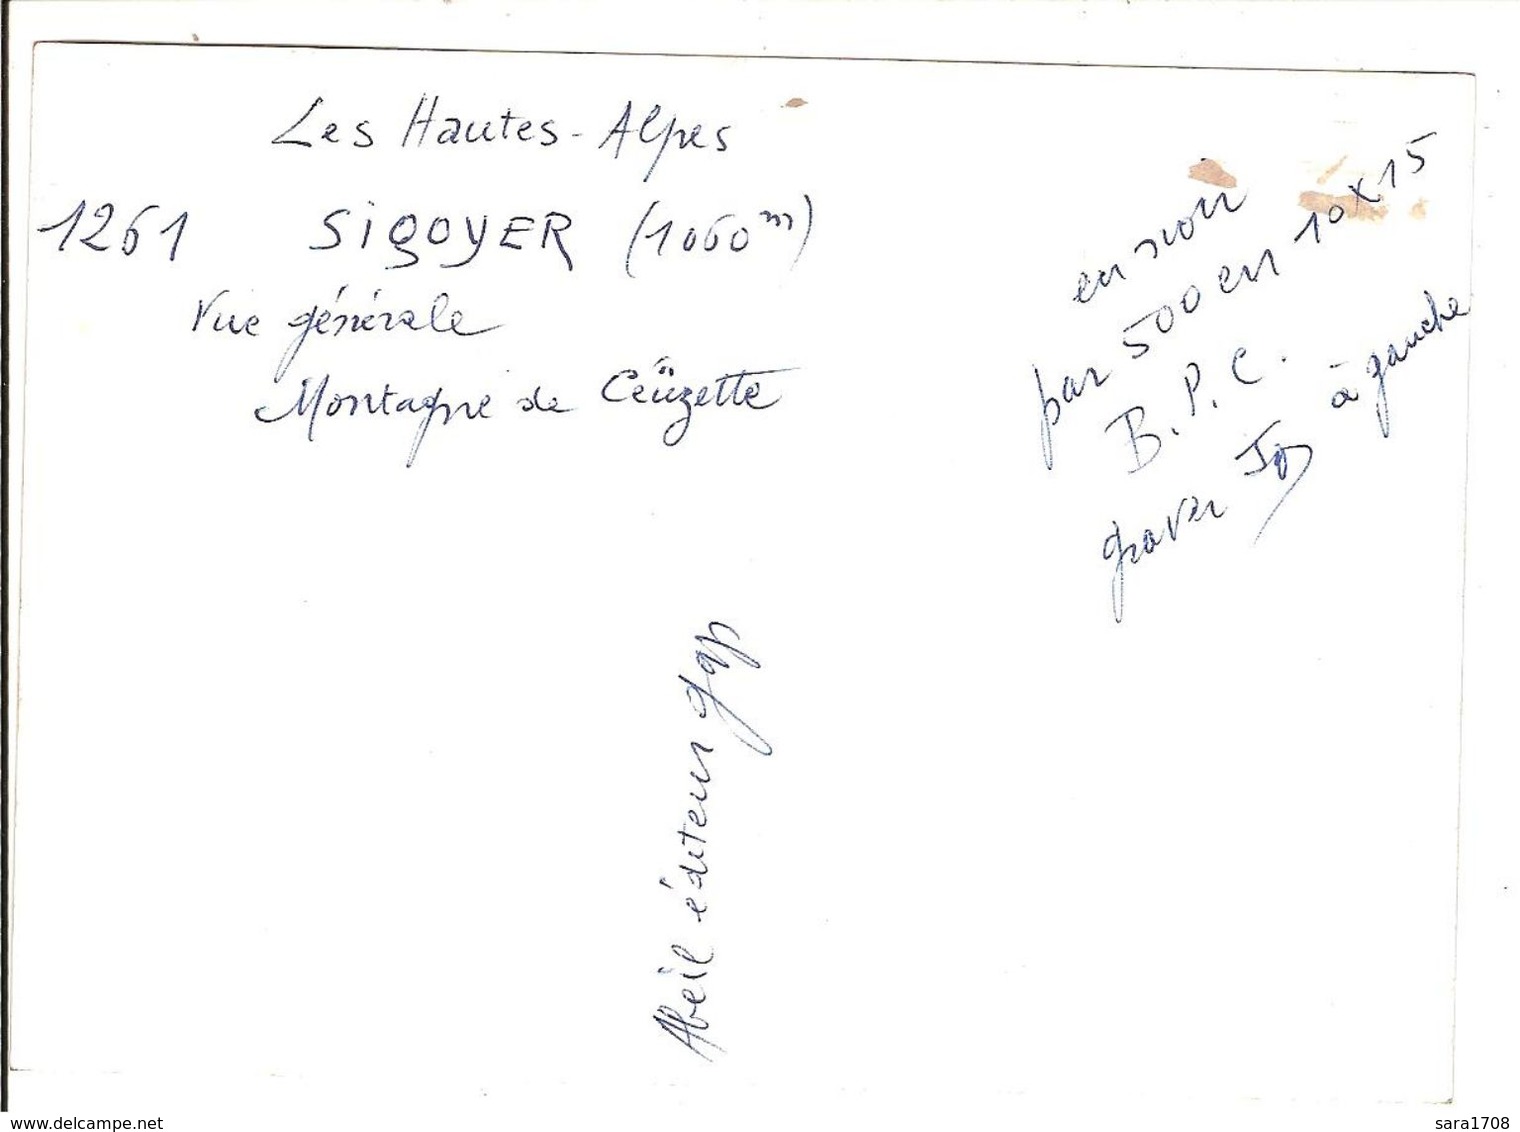 Les Hautes-Alpes
1261 SIGOYER (1060 m)
Vue générale
Montagne de Ceüzette
en noir
par 500 en 10x15
B.P.C.
graver à gauche
Abeil éditeur gap
www.delcampe.net
sara1708